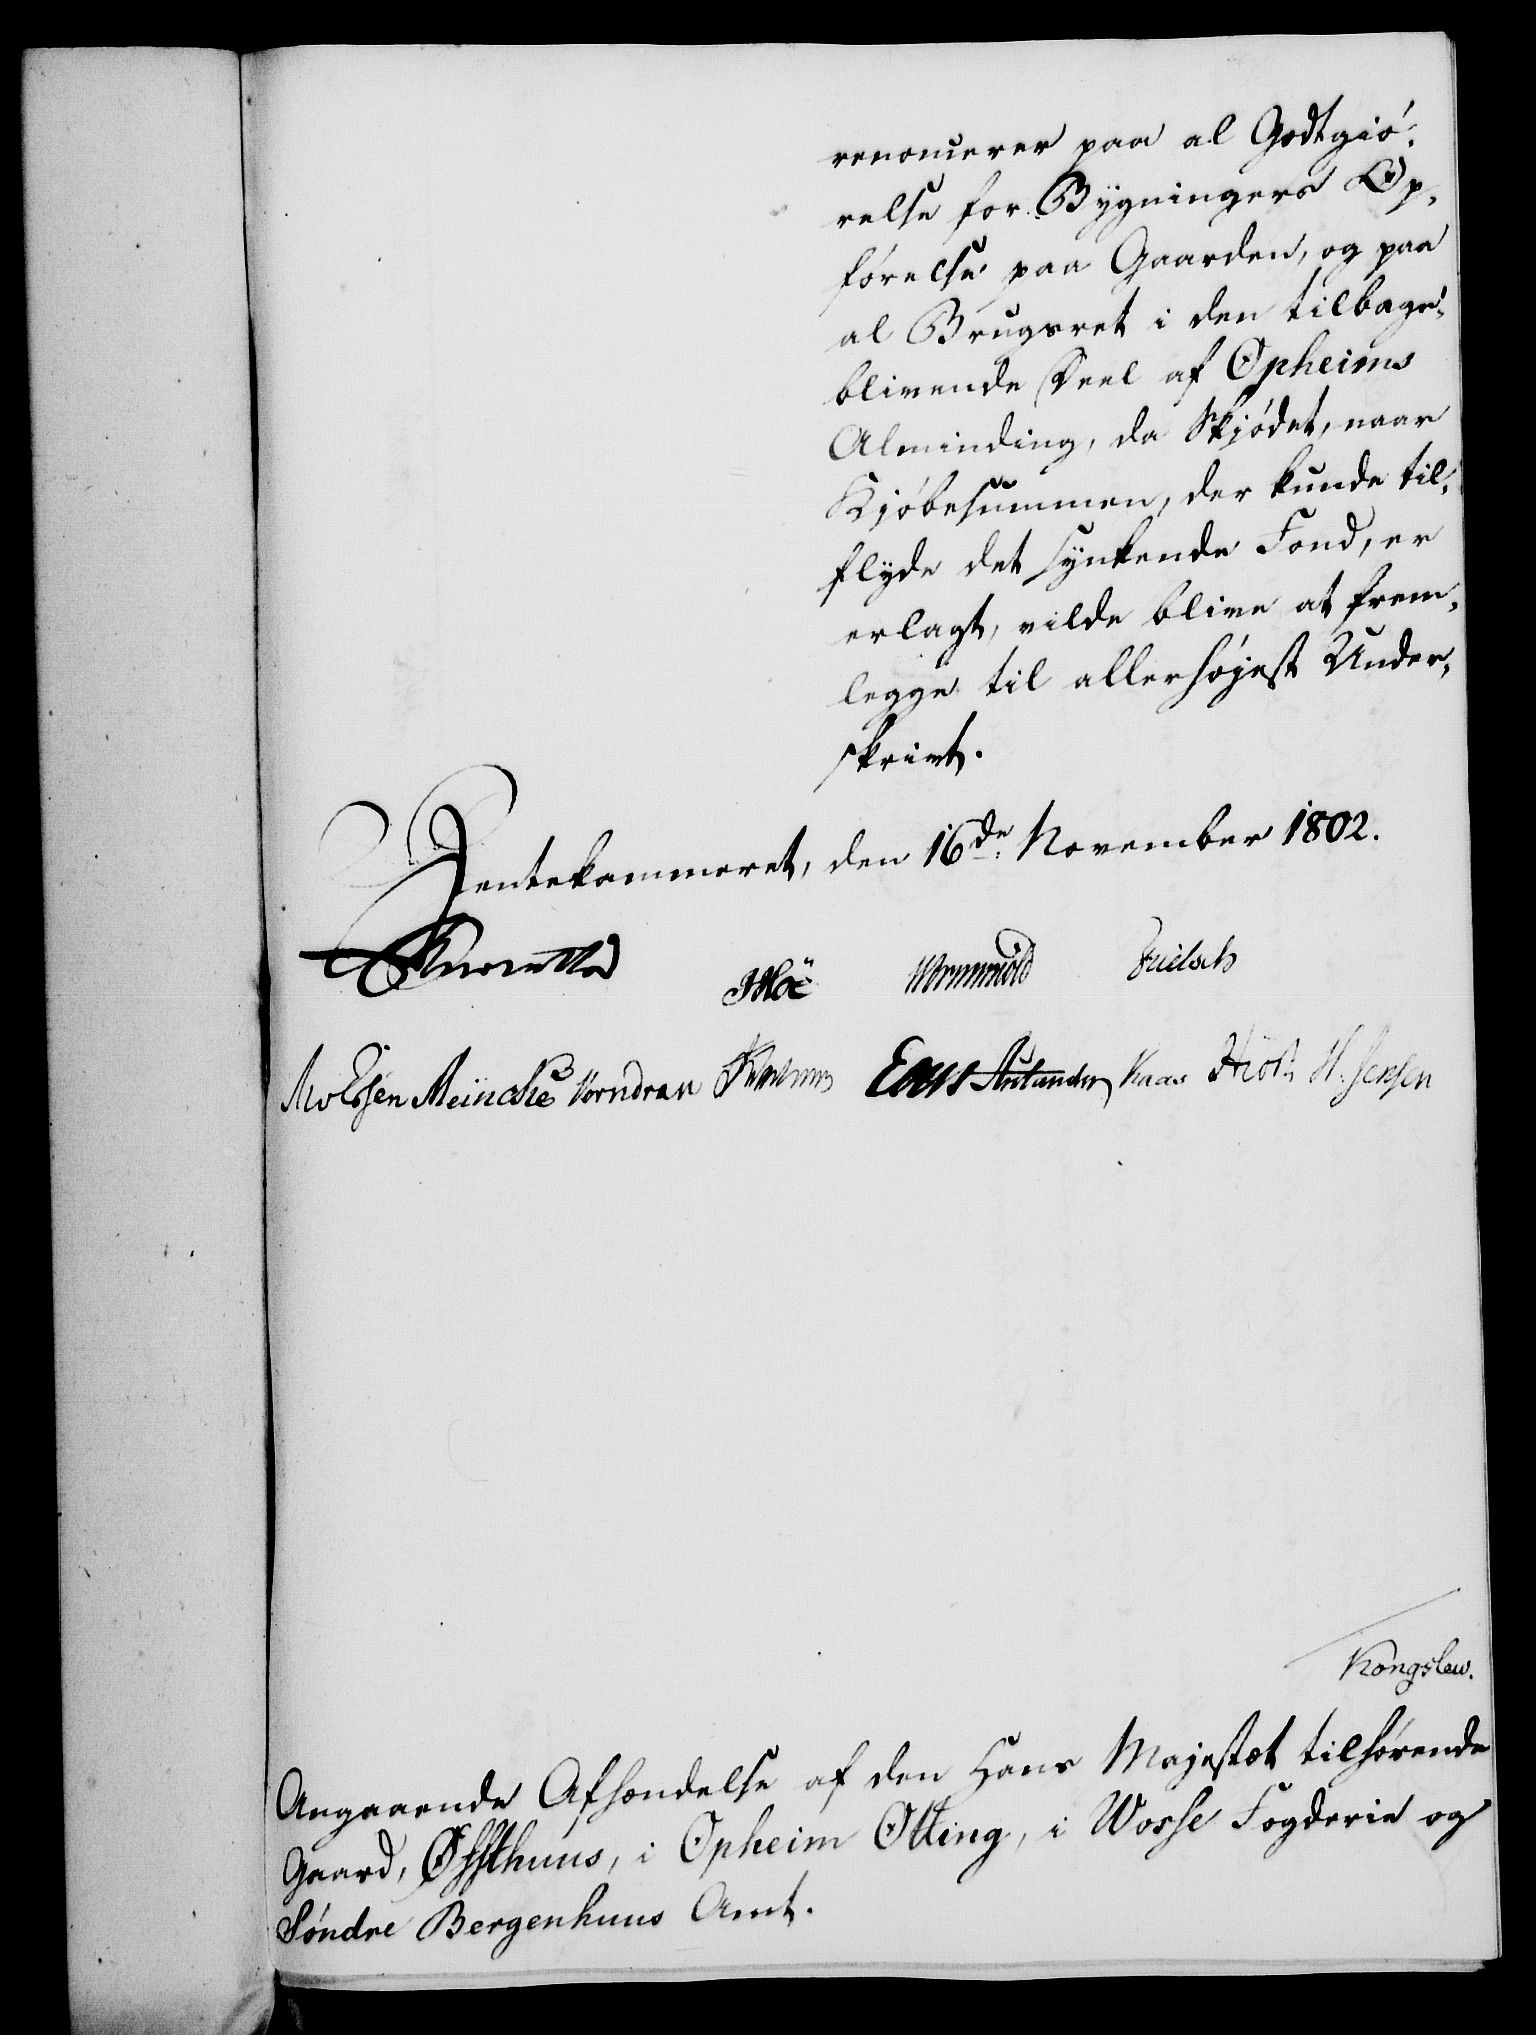 renoncerer paa al Godtgiö-
relse for Bygningers Op-
förelse paa Gaarden, og paa
al Brugsret i den tilbage-
blivende Deel af Opheims
Alminding, da Skjödet, naar
Kjöbesummen, der kunde til-
flyde det synkende Fond, er
erlagt, vilde blive at frem-
legge til allerhöjest Under-
skrivt.
Rentekammeret, den 16de November 1802.
Wormskiold
Meincke Vorndran Kaas H. Jensen
Kongslew.
Angaaende Afhændelse af den Hans Majestæt tilhörende
Gaard, Østhuus, i Opheim Otting, i Wosse Fogderie og
Söndre Bergenhuus Amt.